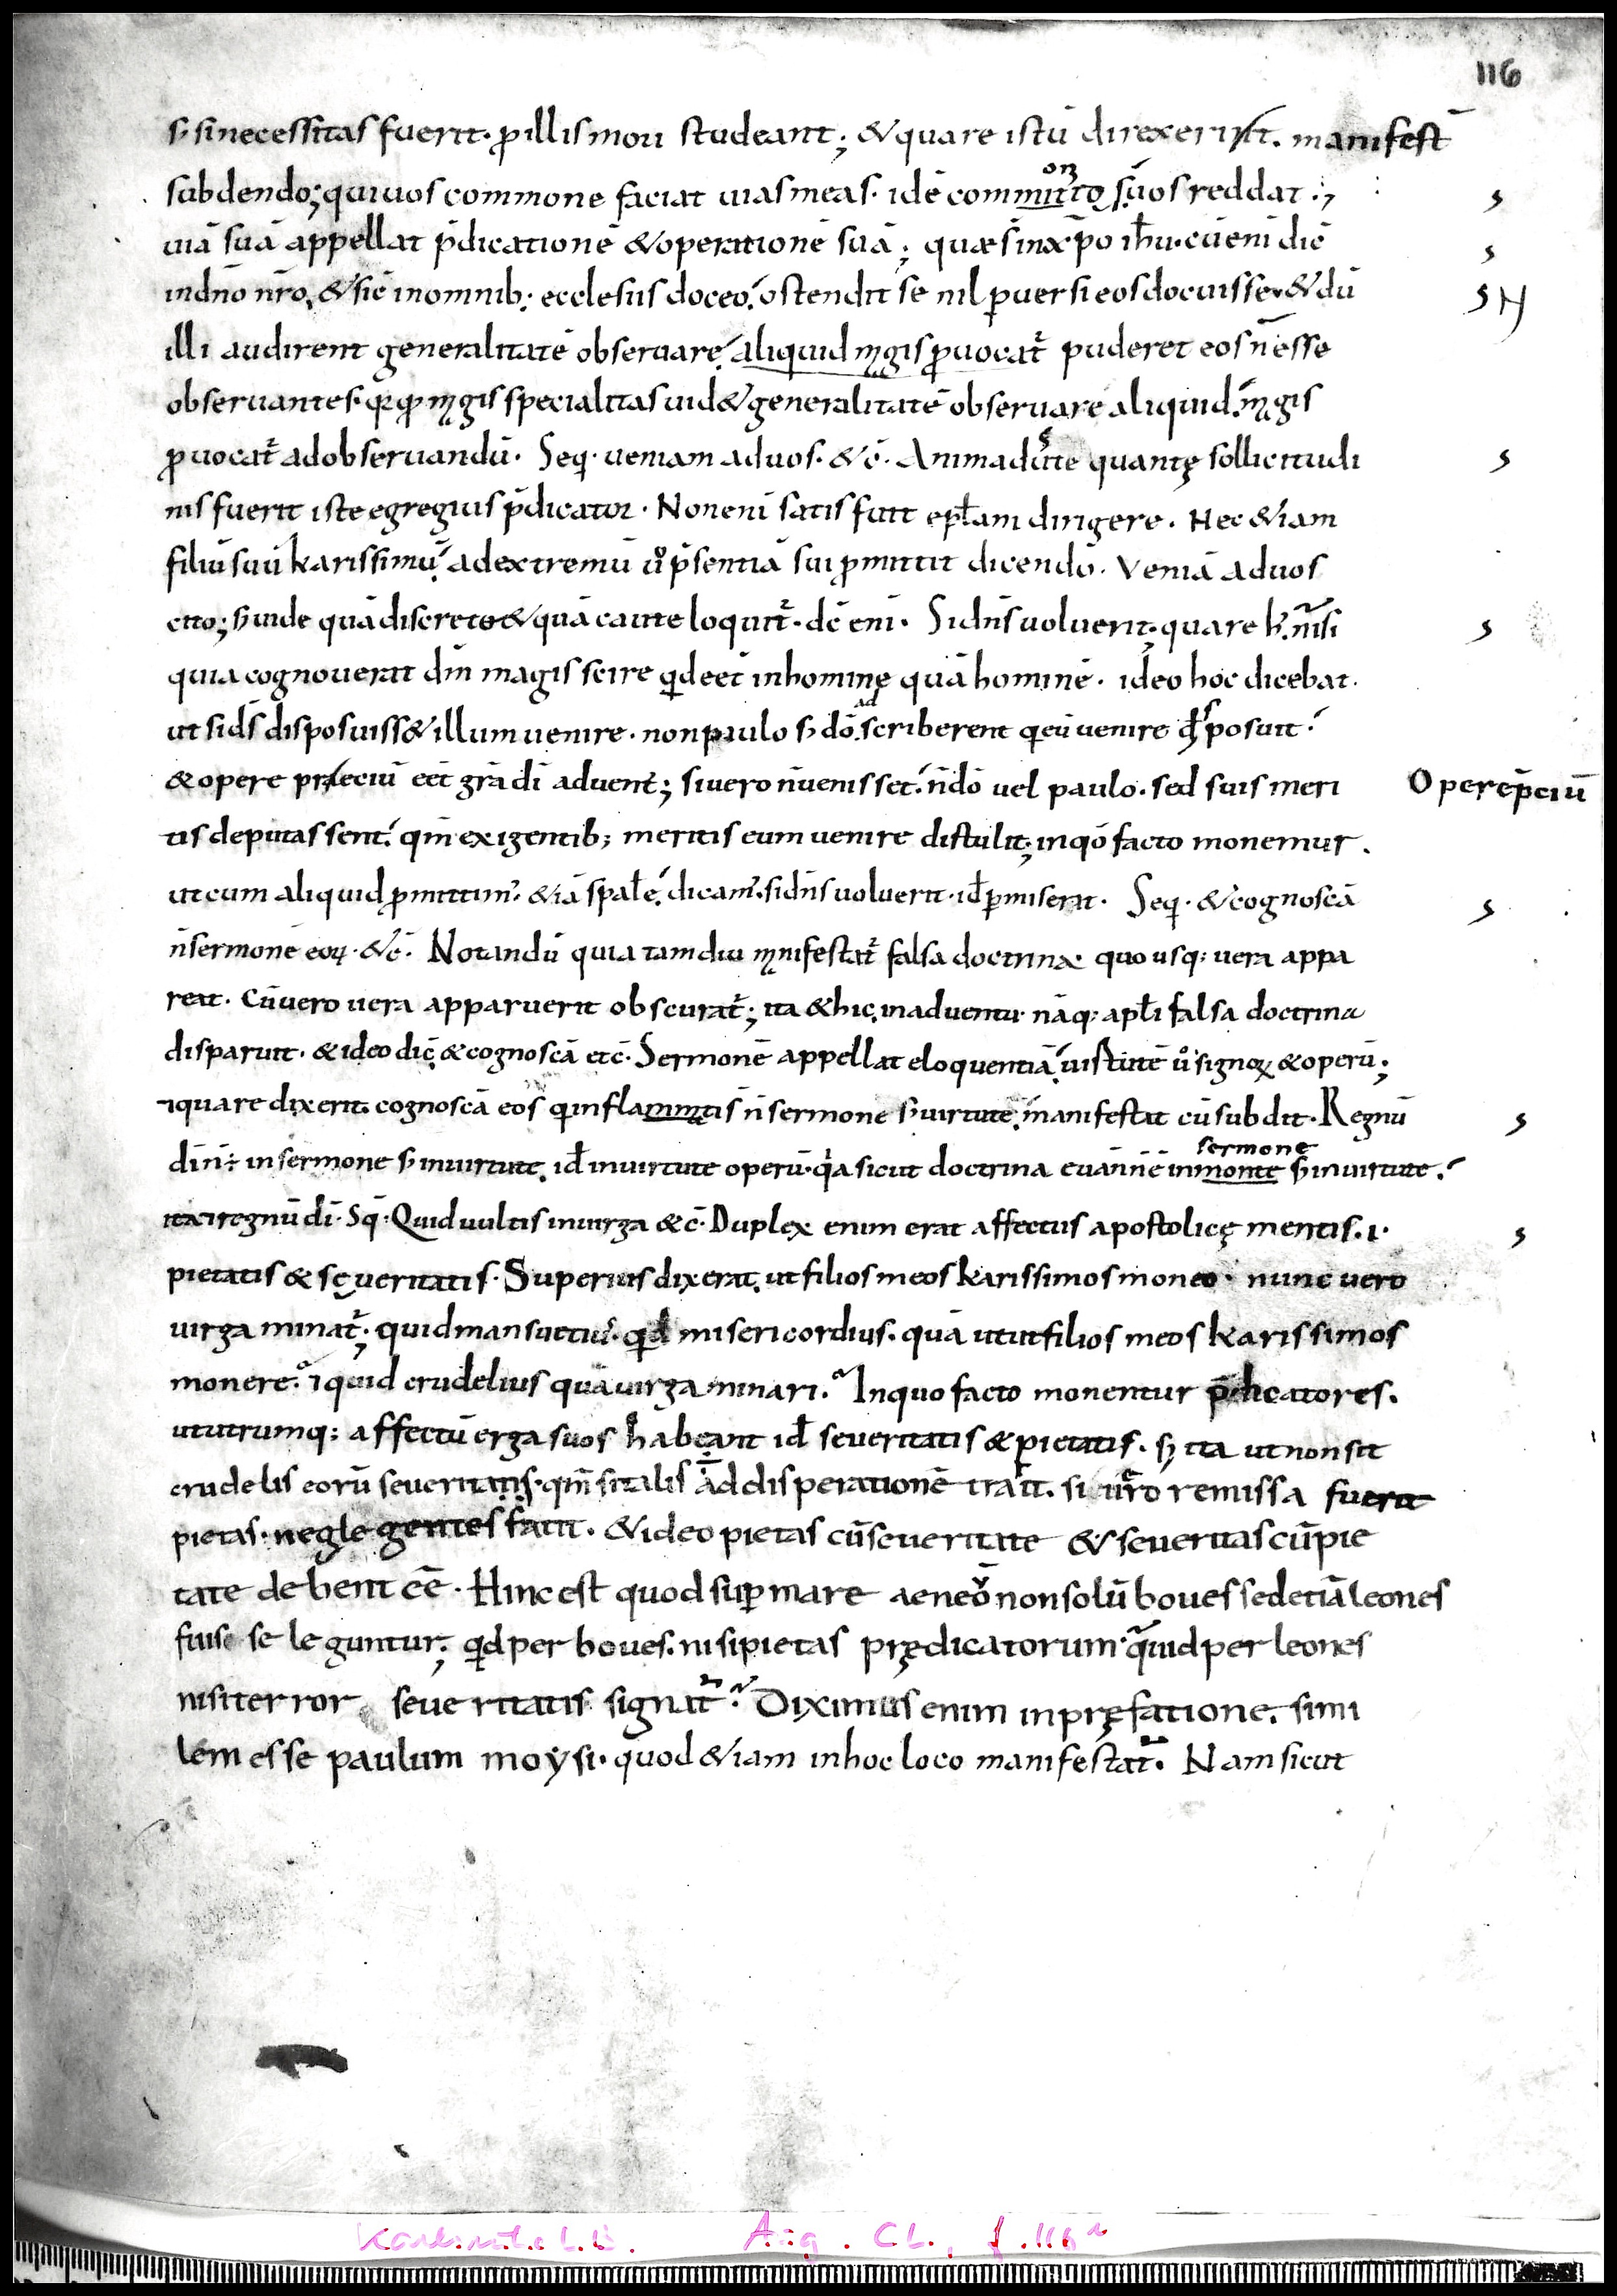 116
ꝑ sinecessitas fuerit· ꝓ illis mori studeant; & quare istū direxerit. manifest̄
subdendo; qui uos commone faciat uias meas· idē committo s; uos reddat ·;
uiā suā appellat p̄dicationē & operationē suā; quæ s̄ in xp̄o ih̄u· cū eni dic̄
in dn̄o nr̄o, & sic̄ in omnib; ecclesiis doceo; ostendit se nil ꝑuersi eos docuisse· & dū
illi audirent generalitatē obseruare aliquid mgis ꝓuocat̄ puderet eos n̄ esse
obseruantes· mgis specialitas uid& generalitatē obseruare aliquid mgis
ꝓuocat̄ ad obseruandū· Seq· ueniam ad uos· &c̄· Animaduerte quantę sollicitudi
nis fuerit iste egregius p̄dicator· Non eni satis fuit ep̄lam dirigere· Nec & iam
filiū suū karissimū ad extremū ů p̄sentiā sui ꝓmittit dicendō· Veniā ad uos
cito; s; uide quā discrete & quā caute loquit̄· dc̄ eni· Si dn̄s uoluerit; quare h; nisi
quia cognouerat dm̄ magis scire qd eēt in homine quā hominē· ideo hoc dicebat·
ut si ds̄ disposuiss& illum uenire· non paulo s; dō ad scriberent q eū uenire disposuit
& opere preciū eēt grā di aduent; si uero n̄ uenisset n̄ dō uel paulo· sed suis meri
Opere p̄ciū
tis deputassent qm̄ exigentib; meritis eum uenire distulit; in qō facto monemur·
ut cum aliquid ꝓmittim· & iā sp̄alē dicam· si dn̄s uoluerit· id ꝑmiserit· Seq· & cognoscā
n̄ sermonē eoꝝ· &c̄· Notandū quia tamdiu mnifestat̄ falsa doctrinæ quo usq; uera appa
reat· Cū uero uera apparuerit obscurat̄; ita & hic in aduentu nāq; apl̄i falsa doctrina
disparuit· & ideo dic̄ & cognoscā etc̄· Sermonē appellat eloquentiā uirtutē ů signoꝝ & operū;
⁊ quare dixerit cognoscā eos q inflammatis n̄ sermone s; uirtute manifestat cū subdit· Regnū
di n̄ ÷ in sermone s; in uirtute id in uirtute operū· qa sicut doctrina euān n̄ ē in monte sermone s; in uirtute
ita ⁊ regnū di· Sq̄· Quid uultis in uirga &c̄· Duplex enim erat affectus apostolicę mentis· ı·
pietatis & seueritatis· Superius dixerat ut filios meos karissimos moneo· nunc uero
uirga minat̄· quid mansuetius· qd misericordius· quā ut ut filios meos karissimos
monere· ⁊ quid crudelius quā uirga minari· In quo facto monentur p̄dicatores·
ut utrumq; affectū erga suos habeant id seueritatis & pietatis· s; ita ut non sit
crudelis eorū seueritatis· qm̄ si talis ad disperationē trait· si ů r̄o remissa fuerit
pietas· neglegentes fatit· & ideo pietas cū seueritate & seueritas cū pie
tate debent ēē· Hinc est quod suꝑ mare aeneō non solū boues sed etiā leones
fuisse leguntur; qd per boues· nisi pietas prędicatorum· quid per leones
nisi terror seueritatis signat̄· Diximus enim in pręfatione· simi
lem esse paulum moysi· quod & iam in hoc loco manifestat̄· Nam sicut
Aug. CL., f. 116r